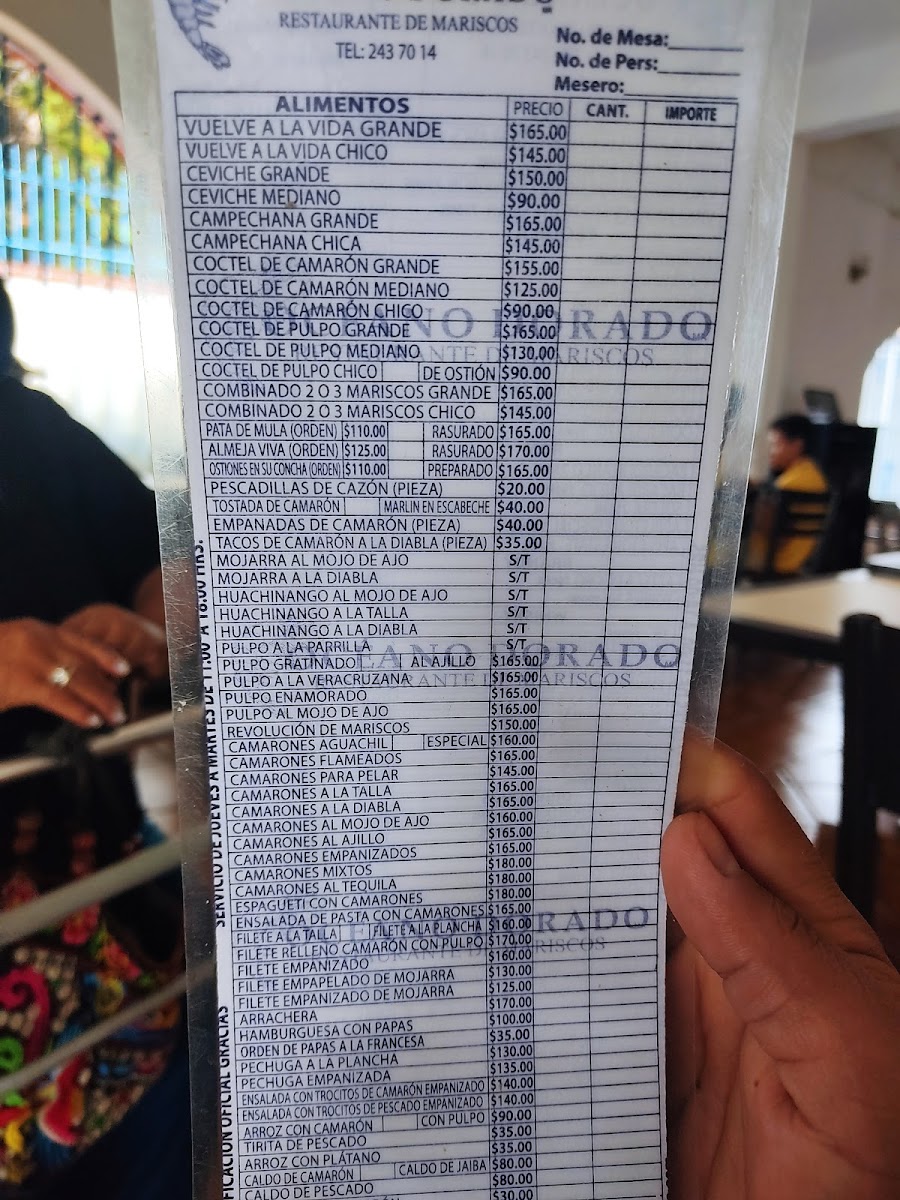 RESTAURANTE DE MARISCOS
TEL: 243 70 14
No. de Mesa:
No. de Pers:
Mesero:
ALIMENTOS PRECIO CANT. IMPORTE
VUELVE A LA VIDA GRANDE $165.00
VUELVE A LA VIDA CHICO $145.00
CEVICHE GRANDE $150.00
CEVICHE MEDIANO $90.00
CAMPECHANA GRANDE $165.00
CAMPECHANA CHICA $145.00
COCTEL DE CAMARÓN GRANDE $155.00
COCTEL DE CAMARÓN MEDIANO $125.00
COCTEL DE CAMARÓN CHICO $90.00
COCTEL DE PULPO GRANDE $165.00
COCTEL DE PULPO MEDIANO $130.00
COCTEL DE PULPO CHICO DE OSTIÓN $90.00
COMBINADO 2 O 3 MARISCOS GRANDE $165.00
COMBINADO 2 O 3 MARISCOS CHICO $145.00
PATA DE MULA (ORDEN) $110.00 RASURADO $165.00
ALMEJA VIVA (ORDEN) $125.00 RASURADO $170.00
OSTIONES EN SU CONCHA (ORDEN) $110.00 PREPARADO $165.00
PESCADILLAS DE CAZÓN (PIEZA) $20.00
TOSTADA DE CAMARÓN MARLIN EN ESCABECHE $40.00
EMPANADAS DE CAMARÓN (PIEZA) $40.00
TACOS DE CAMARÓN A LA DIABLA (PIEZA) $35.00
MOJARRA AL MOJO DE AJO S/T
MOJARRA A LA DIABLA S/T
HUACHINANGO AL MOJO DE AJO S/T
HUACHINANGO A LA TALLA S/T
HUACHINANGO A LA DIABLA S/T
PULPO A LA PARRILLA S/T
PULPO GRATINADO AL AJILLO $165.00
PULPO A LA VERACRUZANA $165.00
PULPO ENAMORADO $165.00
PULPO AL MOJO DE AJO $165.00
REVOLUCIÓN DE MARISCOS $150.00
CAMARONES AGUACHIL ESPECIAL $160.00
CAMARONES FLAMEADOS $165.00
CAMARONES PARA PELAR $145.00
CAMARONES A LA TALLA $165.00
CAMARONES A LA DIABLA $165.00
CAMARONES AL MOJO DE AJO $160.00
CAMARONES AL AJILLO $165.00
CAMARONES EMPANIZADOS $165.00
CAMARONES MIXTOS $180.00
CAMARONES AL TEQUILA $180.00
ESPAGUETI CON CAMARONES $180.00
ENSALADA DE PASTA CON CAMARONES $165.00
FILETE A LA TALLA FILETE A LA PLANCHA $160.00
FILETE RELLENO CAMARÓN CON PULPO $170.00
FILETE EMPANIZADO $160.00
FILETE EMPAPELADO DE MOJARRA $130.00
FILETE EMPANIZADO DE MOJARRA $125.00
ARRACHERA $170.00
HAMBURGUESA CON PAPAS $100.00
ORDEN DE PAPAS A LA FRANCESA $35.00
PECHUGA A LA PLANCHA $130.00
PECHUGA EMPANIZADA $135.00
ENSALADA CON TROCITOS DE CAMARÓN EMPANIZADO $140.00
ENSALADA CON TROCITOS DE PESCADO EMPANIZADO $140.00
ARROZ CON CAMARÓN CON PULPO $90.00
TIRITA DE PESCADO $35.00
ARROZ CON PLÁTANO $35.00
CALDO DE CAMARÓN CALDO DE JAIBA $80.00
CALDO DE PESCADO $80.00
$30.00
SERVICIO DE JUEVES A MARTES DE 11:00 A 18:00 HRS.
OFICIAL GRACIAS